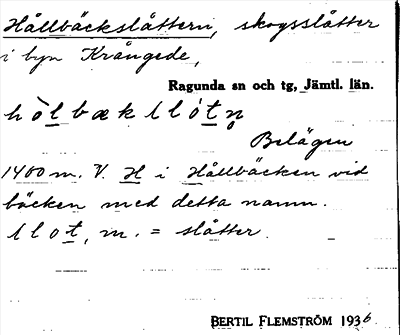 Hållbäckslåttern, skogsslåtter
i byn Krångede,
Ragunda sn och tg, Jämtl. län.
hòlbækllótn̥
Belägen
1400 m. V. H i Hållbäcken vid
bäcken med detta namn.
llot, m. = slåtter.
BERTIL FLEMSTRÖM 1936